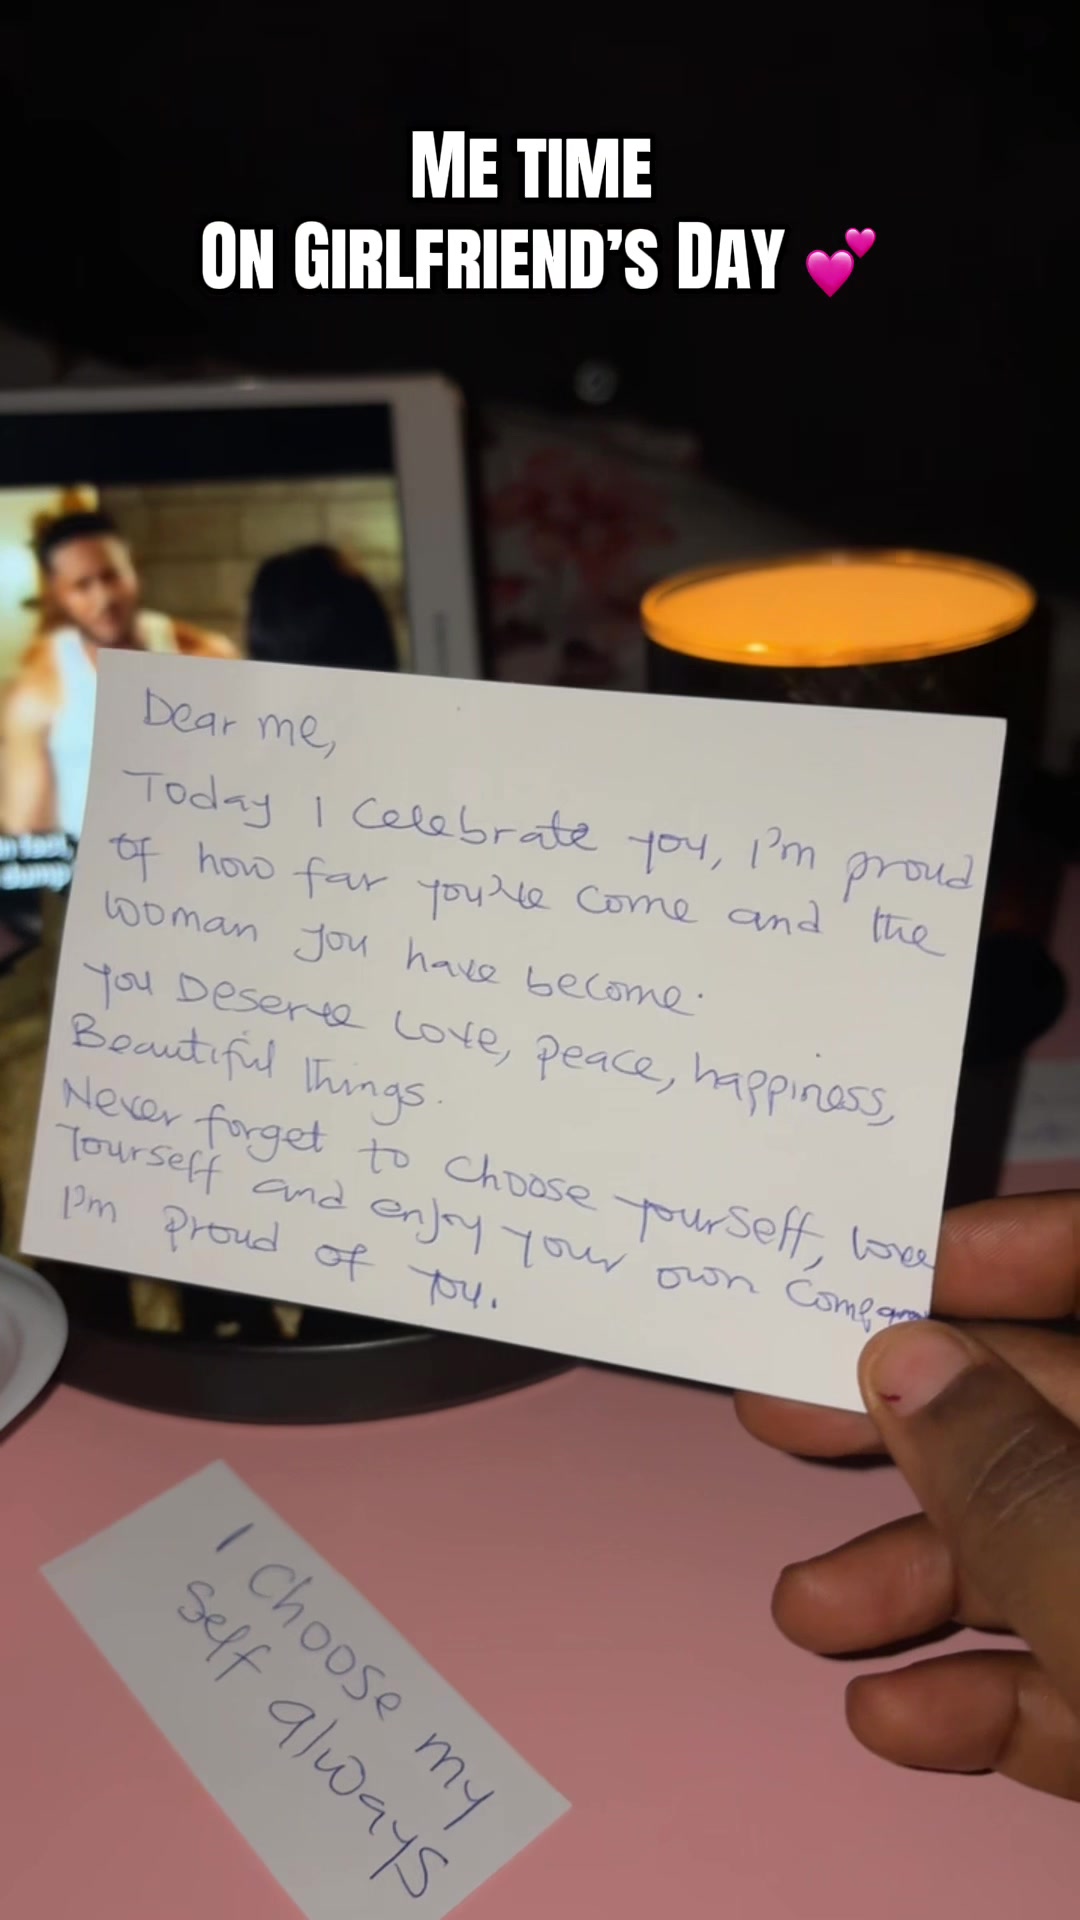 ME TIME
ON GIRLFRIEND'S DAY 💕
Dear me,
Today I celebrate you, I'm proud
of how far you've come and the
woman you have become.
You Deserve Love, peace, happiness,
Beautiful things.
Never forget to choose yourself, love
Yourself and enjoy your own company
I'm proud of you.
n fact,
dump
I choose my
self always